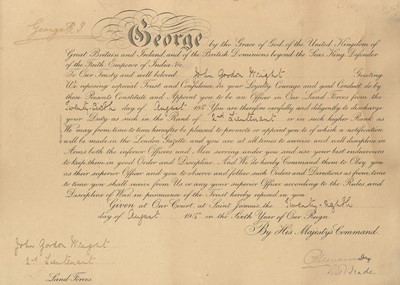 George R I
George by the Grace of God of the United Kingdom of
Great Britain and Ireland and of the British Dominions beyond the Seas, King, Defender
of the Faith, Emperor of India, &c.
To Our Trusty and well beloved John Gordon Wright Greeting
We, reposing especial Trust and Confidence in your Loyalty, Courage, and good Conduct, do by
these Presents Constitute and Appoint you to be an Officer in Our Land Forces from the
day of August 1915. You are therefore carefully and diligently to discharge
your Duty as such in the Rank of 2nd Lieutenant or in such higher Rank as
We may from time to time hereafter be pleased to promote or appoint you to, of which a notification
will be made in the London Gazette, and you are at all times to exercise and well discipline in
Arms both the inferior Officers and Men serving under you and use your best endeavours
to keep them in good Order and Discipline. And We do hereby Command them to Obey you
as their superior Officer and you to observe and follow such Orders and Directions as from time
to time you shall receive from Us, or any your superior Officer, according to the Rules and
Discipline of War, in pursuance of the Trust hereby reposed in you.
Given at Our Court, at Saint James's, the
day of August 1915, in the Sixth Year of Our Reign
By His Majesty's Command.
John Gordon Wright
2nd Lieutenant
Land Forces